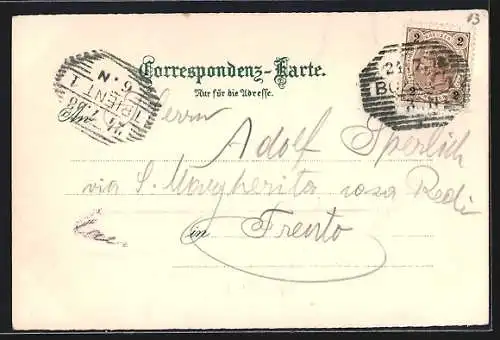 13
Correspondenz-Karte.
Nur für die Adresse.
TRIENT 1
6. N
An Herrn
Adolf Sperlich
via S. Margherita casa Redi
in Trento
2 2